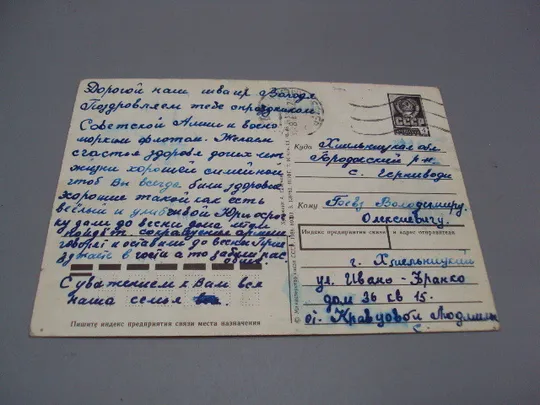 Дорогой наш швагир Володя
Поздровляем тебе спраздником
Советской Алмии и воено
морким флотом. Желаем
счастья здоровя долих лет
жизни хорошей симейной
чтоб Вы всегда били здорове
хорошие такой как есть
весёлый и улибчивой Юри
ку дали до весни
говорят и оставили до весны Приє
зжайте в гости а то забули нас
С уважением к Вам вся
наша семья
Пишите индекс предприятия связи места назначения
СССР
Куда Хмельницкая обл.
Городокский р-н
с.
Кому Гоеву Володимиру
Олексиевичу.
Индекс предприятия связи и адрес отправителя
г. Хмельницкий
ул. Ивано Франко
дом 36 кв 15.
от Кравцовой Людмили